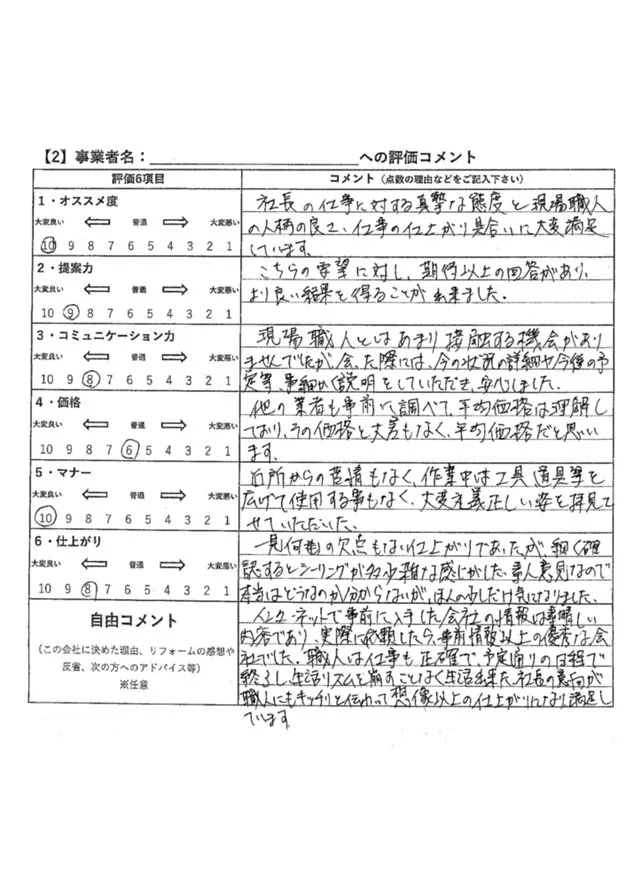 【2】事業者名：＿＿＿＿＿＿＿＿＿＿＿＿＿＿への評価コメント
評価6項目
コメント（点数の理由などをご記入下さい）
1・オススメ度
大変良い ⇐ 普通 ⇒ 大変悪い
10 9 8 7 6 5 4 3 2 1
社長の仕事に対する真摯な態度と現場職人
の人柄の良さ、仕事の仕上がり具合いに大変満足
しています。
2・提案力
大変良い ⇐ 普通 ⇒ 大変悪い
10 9 8 7 6 5 4 3 2 1
こちらの要望に対し、期待以上の回答があり、
より良い結果を得ることが出来ました。
3・コミュニケーション力
大変良い ⇐ 普通 ⇒ 大変悪い
10 9 8 7 6 5 4 3 2 1
現場職人とはあまり接触する機会があり
ませんでしたが、会った際には、今の状況の詳細や今後の予
定等、事細かく説明をしていただき、安心しました。
4・価格
大変良い ⇐ 普通 ⇒ 大変悪い
10 9 8 7 6 5 4 3 2 1
他の業者も事前に調べて、平均価格は理解し
ており、その価格と大差もなく、平均価格だと思い
ます。
5・マナー
大変良い ⇐ 普通 ⇒ 大変悪い
10 9 8 7 6 5 4 3 2 1
近所からの苦情もなく、作業中は工具、道具等を
広げて使用する事もなく、大変礼義正しい姿を拝見さ
せていただいた。
6・仕上がり
大変良い ⇐ 普通 ⇒ 大変悪い
10 9 8 7 6 5 4 3 2 1
一見何らの欠点もない仕上がりであったが、細く確
認するとシーリングが多少雑な感じがした。素人意見なので
本当はどうなのか分からないが、ほんの少しだけ気になりました。
自由コメント
（この会社に決めた理由、リフォームの感想や
反省、次の方へのアドバイス等）
※任意
インターネットで事前に入手した会社の情報は素晴しい
内容であり、実際に依頼したら、事前情報以上の優秀な会
社でした。職人は仕事も正確で、予定通りの日程で
終了し、生活リズムを崩すことなく生活出来た。社長の意向が
職人にもキッチリと伝わって想像以上の仕上がりになり満足し
ています